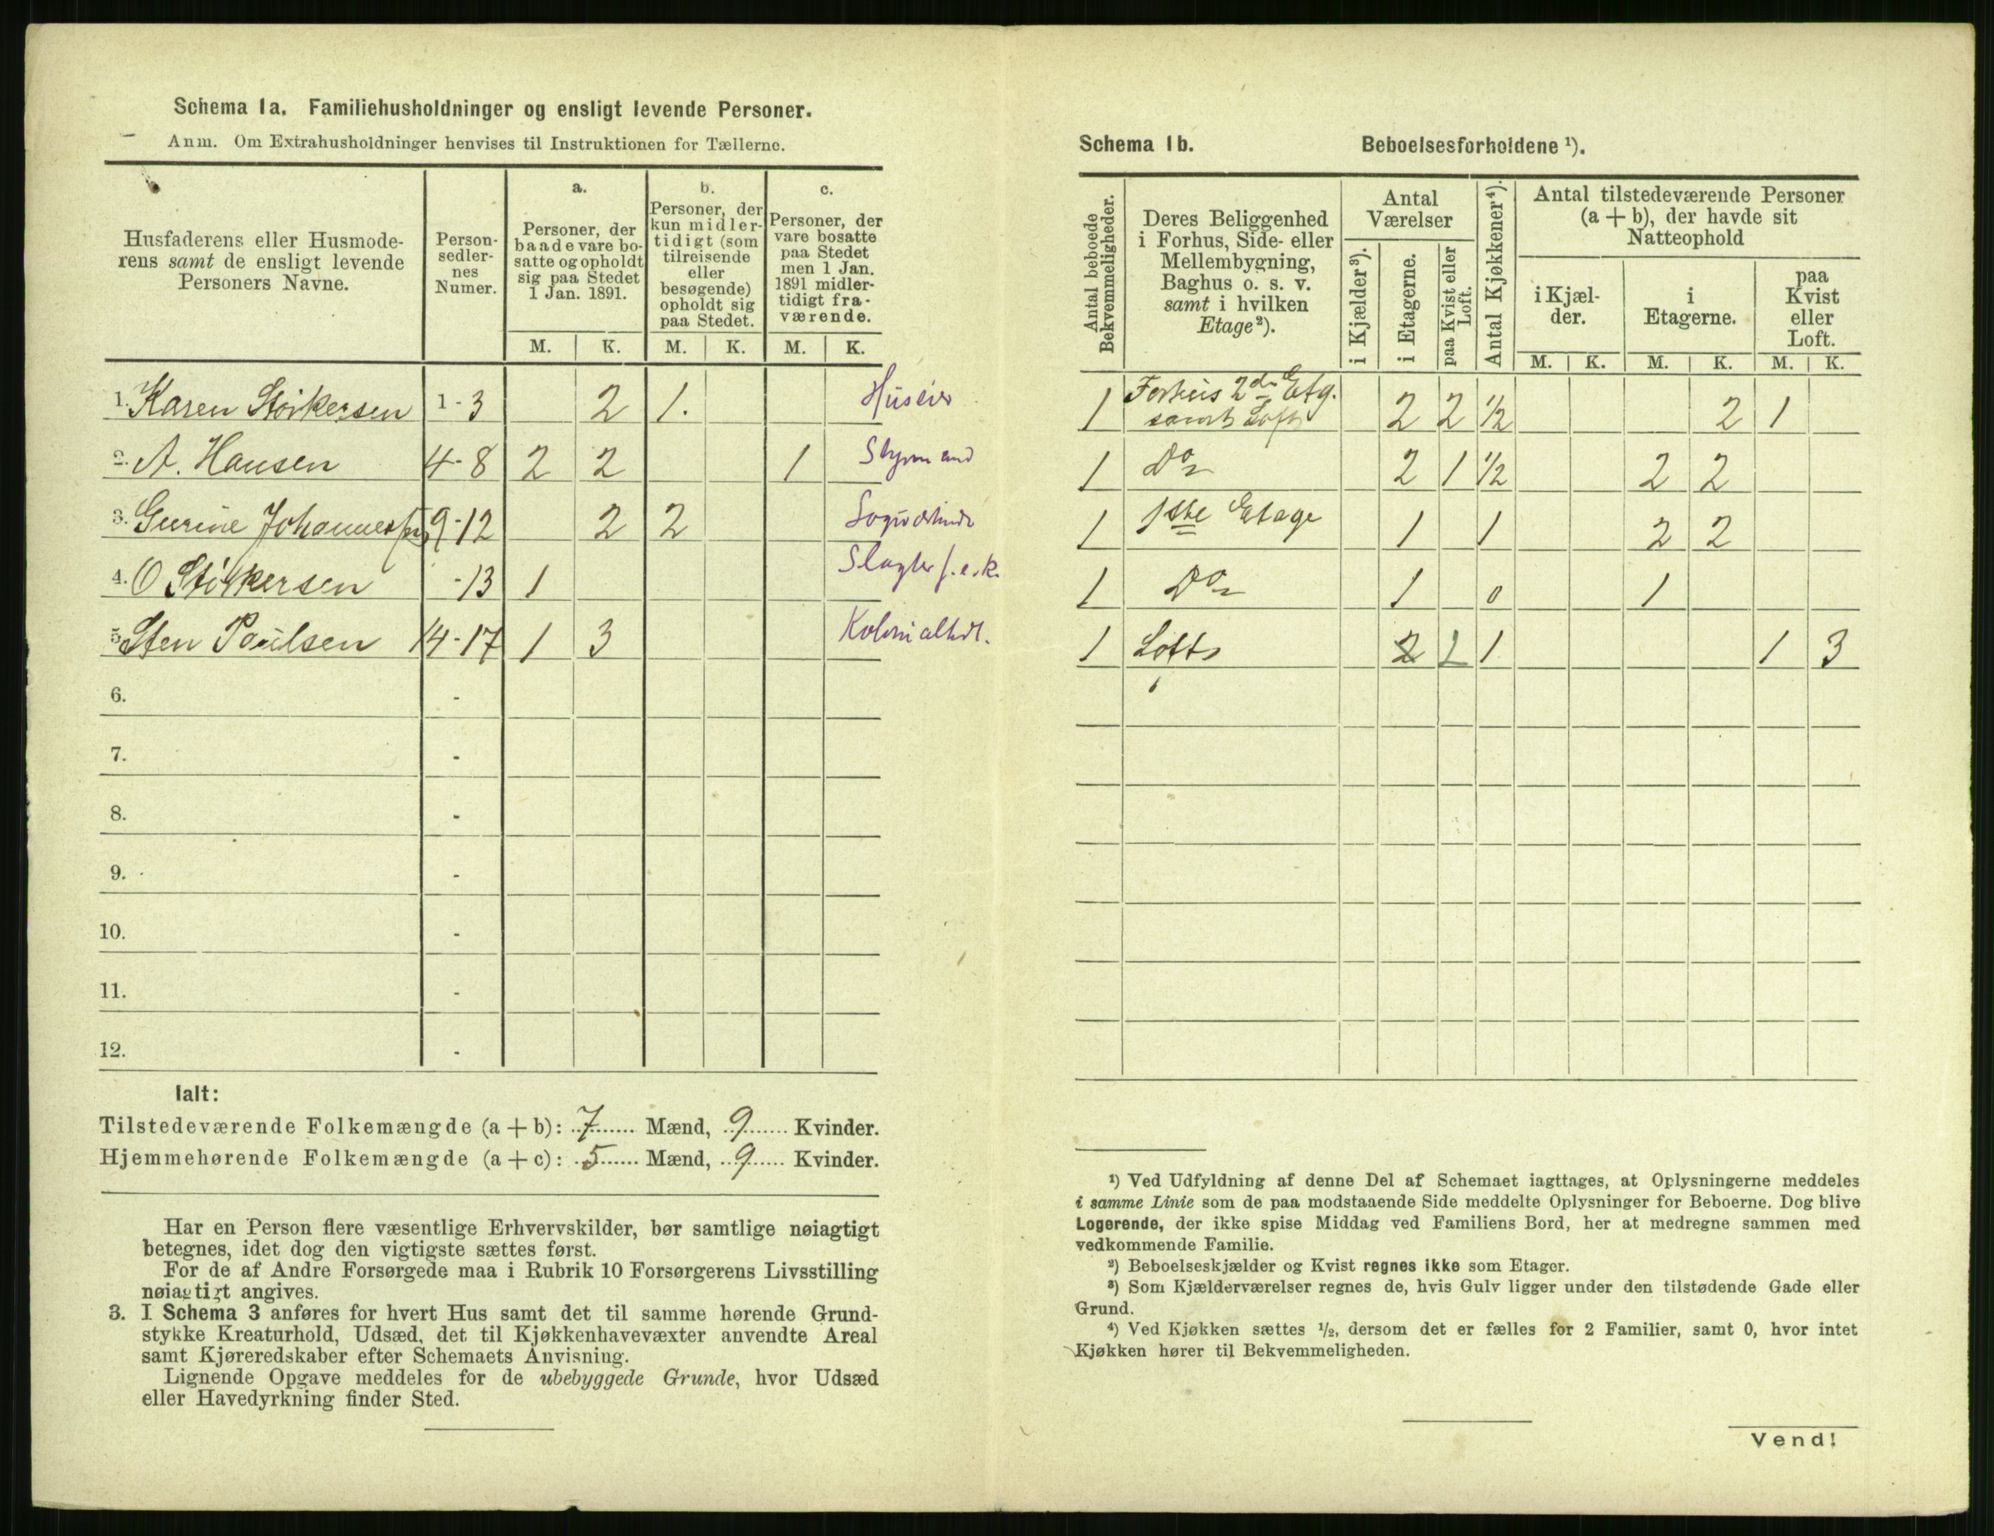 Schema 1a. Familiehusholdninger og ensligt levende Personer.
Anm. Om Extrahusholdninger henvises til Instruktionen for Tællerne.
Husfaderens eller Husmoderens samt de ensligt levende Personers Navne.
Person-
sedler-
nes
Numer.
a.
Personer, der
baade vare bo-
satte og opholdt
sig paa Stedet
1 Jan. 1891.
b.
Personer, der
kun midler-
tidigt (som
tilreisende
eller
besøgende)
opholdt sig
paa Stedet.
c.
Personer, der
vare bosatte
paa Stedet
men 1 Jan.
1891 midler-
tidigt fra-
værende.
M. K. M. K. M. K.
1. Karen Störkersen 1-3 2 1. Huseier
2. A. Hansen 4-8 2 2 1 Styrmand
3. Gurine 9-12 2 2
4. O Störkersen -13 1 Slagter f.e.k.
5. Sten Paulsen 14-17 1 3 Kolonialhdl.
6. -
7. -
8. -
9. -
10. -
11. -
12. -
Ialt:
Tilstedeværende Folkemængde (a + b): 7 Mænd, 9 Kvinder.
Hjemmehørende Folkemængde (a + c): 5 Mænd, 9 Kvinder.
Har en Person flere væsentlige Erhvervskilder, bør samtlige nøiagtigt
betegnes, idet dog den vigtigste sættes først.
For de af Andre Forsørgede maa i Rubrik 10 Forsørgerens Livsstilling
nøiagtigt angives.
3. I Schema 3 anføres for hvert Hus samt det til samme hørende Grund-
stykke Kreaturhold, Udsæd, det til Kjøkkenhavevæxter anvendte Areal
samt Kjøreredskaber efter Schemaets Anvisning.
Lignende Opgave meddeles for de ubebyggede Grunde, hvor Udsæd
eller Havedyrkning finder Sted.
Schema 1b. Beboelsesforholdene ¹).
Antal beboede
Bekvemmeligheder.
Deres Beliggenhed
i Forhus, Side- eller
Mellembygning,
Baghus o. s. v.
samt i hvilken
Etage²).
Antal
Værelser
i Kjælder³).
i Etagerne.
paa Kvist eller
Loft.
Antal Kjøkkener⁴).
Antal tilstedeværende Personer
(a + b), der havde sit
Natteophold
i Kjæl-
der.
i
Etagerne.
paa
Kvist
eller
Loft.
M. K. M. K. M. K.
1 Forhus 2den Etg. samt Loft 2 2 1/2 2 1
1 Do 2 1 1/2 2 2
1 1ste Etage 1 1 2 2
1 Do 1 0 1
1 Lofts 2 2 1 1 3
¹) Ved Udfyldning af denne Del af Schemaet iagttages, at Oplysningerne meddeles
i samme Linie som de paa modstaaende Side meddelte Oplysninger for Beboerne. Dog blive
Logerende, der ikke spise Middag ved Familiens Bord, her at medregne sammen med
vedkommende Familie.
²) Beboelseskjælder og Kvist regnes ikke som Etager.
³) Som Kjælderværelser regnes de, hvis Gulv ligger under den tilstødende Gade eller
Grund.
⁴) Ved Kjøkken sættes ½, dersom det er fælles for 2 Familier, samt 0, hvor intet
Kjøkken hører til Bekvemmeligheden.
Vend!